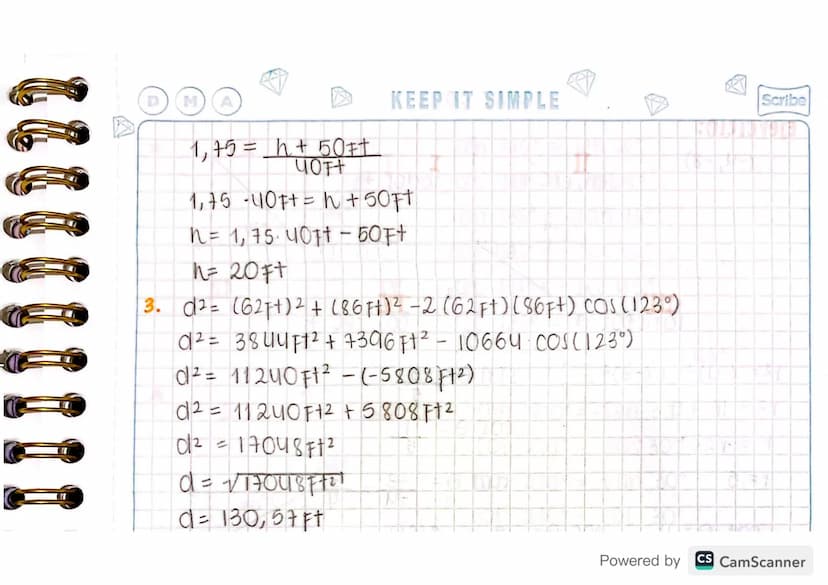 D M A KEEP IT SIMPLE Scribe
1,75 = h + 50Ft
40Ft
1,75 · 40Ft = h + 50Ft
h = 1,75 · 40Ft - 50Ft
h = 20Ft
3. d² = (62Ft)² + (86Ft)² - 2 (62Ft)(86Ft) COS(123°)
d² = 3844Ft² + 7396Ft² - 10664 · COS(123°)
d² = 11240Ft² - (-5808Ft²)
d² = 11240Ft² + 5808Ft²
d² = 17048Ft²
d = √17048Ft²
d = 130,57Ft
Powered by CS CamScanner